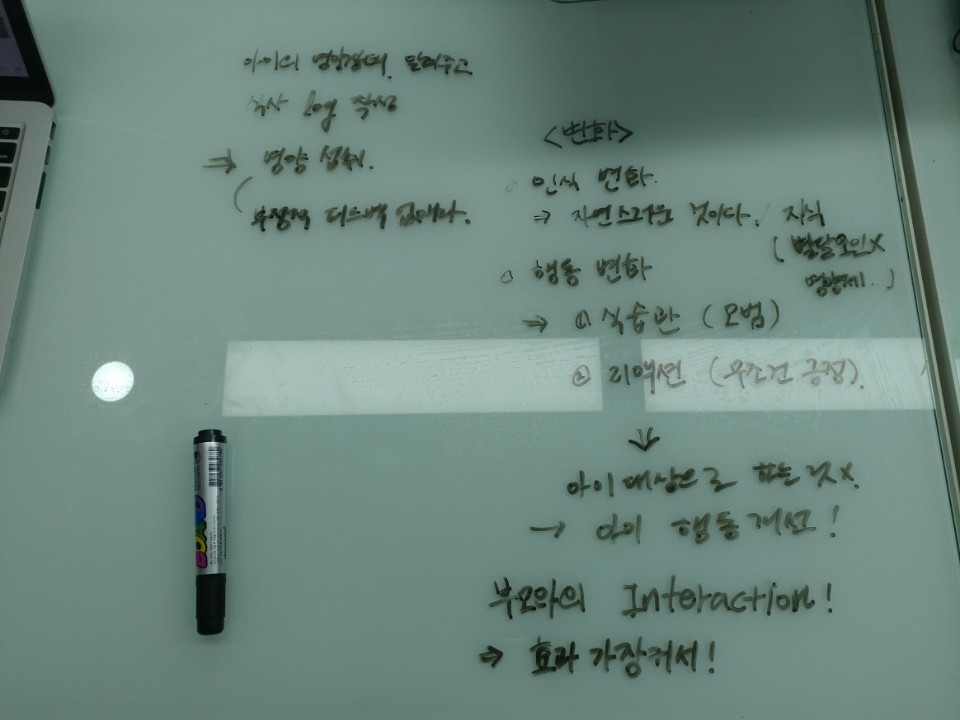 아이의 영양상태 알려주고
식사 log 작성
⇒ 영양 섭취.
부정적 피드백 없애다.
<변화>
○ 인식 변화.
⇒ 자연스러운 것이다. 지식
(발달요인X
영양제..)
○ 행동 변화
⇒ ① 식습관 (모범)
② 리액션 (무조건 긍정).
↓
아이 대상으로 하는 것X.
→ 아이 행동개선!
부모와의 Interaction!
⇒ 효과 가장커서!
BOARD